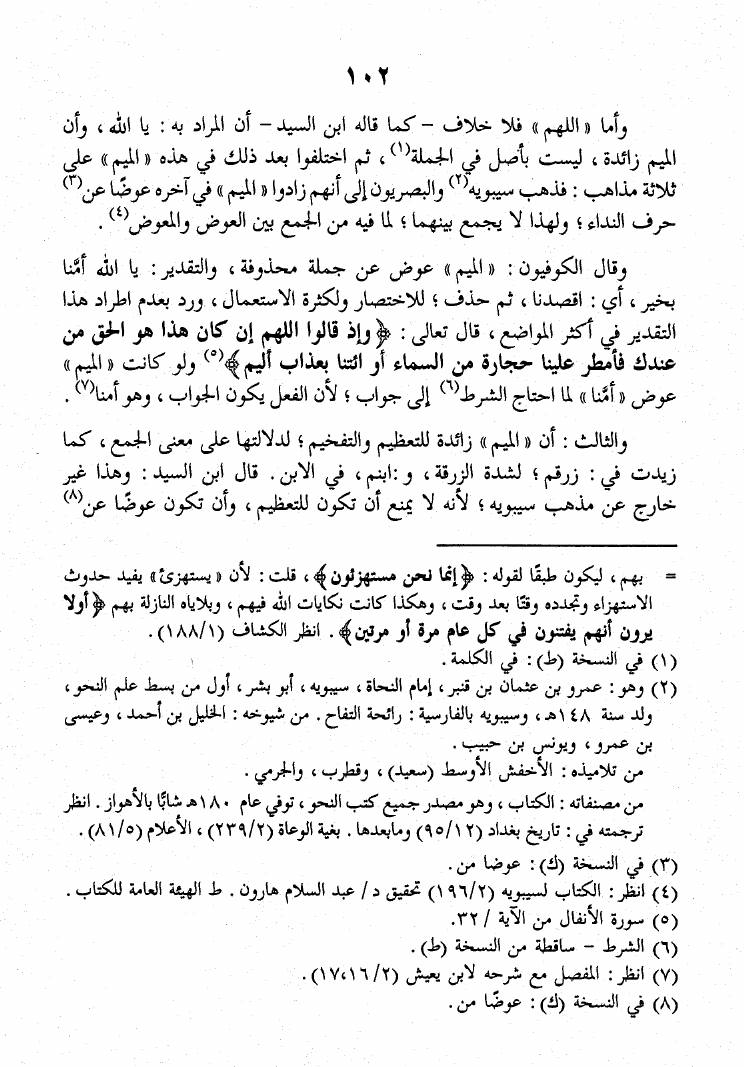 ١٠٢
وأما «اللهم» فلا خلاف – كما قاله ابن السيد – أن المراد به : يا الله ، وأن
الميم زائدة ، ليست بأصل في الجملة(١) ، ثم اختلفوا بعد ذلك في هذه «الميم» على
ثلاثة مذاهب : فذهب سيبويه(٢) والبصريون إلى أنهم زادوا «الميم» في آخره عوضًا عن(٣)
حرف النداء ؛ ولهذا لا يجمع بينهما ؛ لما فيه من الجمع بين العوض والمعوض(٤) .
وقال الكوفيون : «الميم» عوض عن جملة محذوفة ، والتقدير : يا الله أمَّنا
بخير ، أي : اقصدنا ، ثم حذف ؛ للاختصار ولكثرة الاستعمال ، ورد بعدم اطراد هذا
التقدير في أكثر المواضع ، قال تعالى : ﴿ وإذ قالوا اللهم إن كان هذا هو الحق من
عندك فأمطر علينا حجارة من السماء أو ائتنا بعذاب أليم ﴾(٥) ولو كانت «الميم»
عوض «أمَّنا» لما احتاج الشرط(٦) إلى جواب ؛ لأن الفعل يكون الجواب ، وهو أمنا(٧) .
والثالث : أن «الميم» زائدة للتعظيم والتفخيم ؛ لدلالتها على معنى الجمع ، كما
زيدت في : زرقم ؛ لشدة الزرقة ، و :ابنم ، في الابن . قال ابن السيد : وهذا غير
خارج عن مذهب سيبويه ؛ لأنه لا يمنع أن تكون للتعظيم ، وأن تكون عوضًا عن(٨)
= بهم ، ليكون طبقًا لقوله : ﴿ إنما نحن مستهزئون ﴾ ، قلت : لأن «يستهزئ» يفيد حدوث
الاستهزاء وتجدده وقتًا بعد وقت ، وهكذا كانت نكايات الله فيهم ، وبلاياه النازلة بهم ﴿ أولا
يرون أنهم يفتنون في كل عام مرة أو مرتين ﴾ . انظر الكشاف (١/ ١٨٨).
(١) في النسخة (ط) : في الكلمة .
(٢) وهو : عمرو بن عثمان بن قنبر ، إمام النحاة ، سيبويه ، أبو بشر ، أول من بسط علم النحو ،
ولد سنة ١٤٨ هـ ، وسيبويه بالفارسية : رائحة التفاح . من شيوخه : الخليل بن أحمد ، وعيسى
بن عمرو ، ويونس بن حبيب .
من تلاميذه : الأخفش الأوسط (سعيد) ، وقطرب ، والجرمي .
من مصنفاته : الكتاب ، وهو مصدر جميع كتب النحو ، توفي عام ١٨٠ هـ شابًّا بالأهواز . انظر
ترجمته في : تاريخ بغداد (١٢/ ٩٥) ومابعدها . بغية الوعاة (٢/ ٢٣٩) ، الأعلام (٥/ ٨١).
(٣) في النسخة (ك) : عوضا من.
(٤) انظر : الكتاب لسيبويه (٢/ ١٩٦) تحقيق د/ عبد السلام هارون . ط الهيئة العامة للكتاب .
(٥) سورة الأنفال من الآية / ٣٢.
(٦) الشرط – ساقطة من النسخة (ط) .
(٧) انظر : المفصل مع شرحه لابن يعيش (٢/ ١٦،١٧) .
(٨) في النسخة (ك) : عوضًا من .